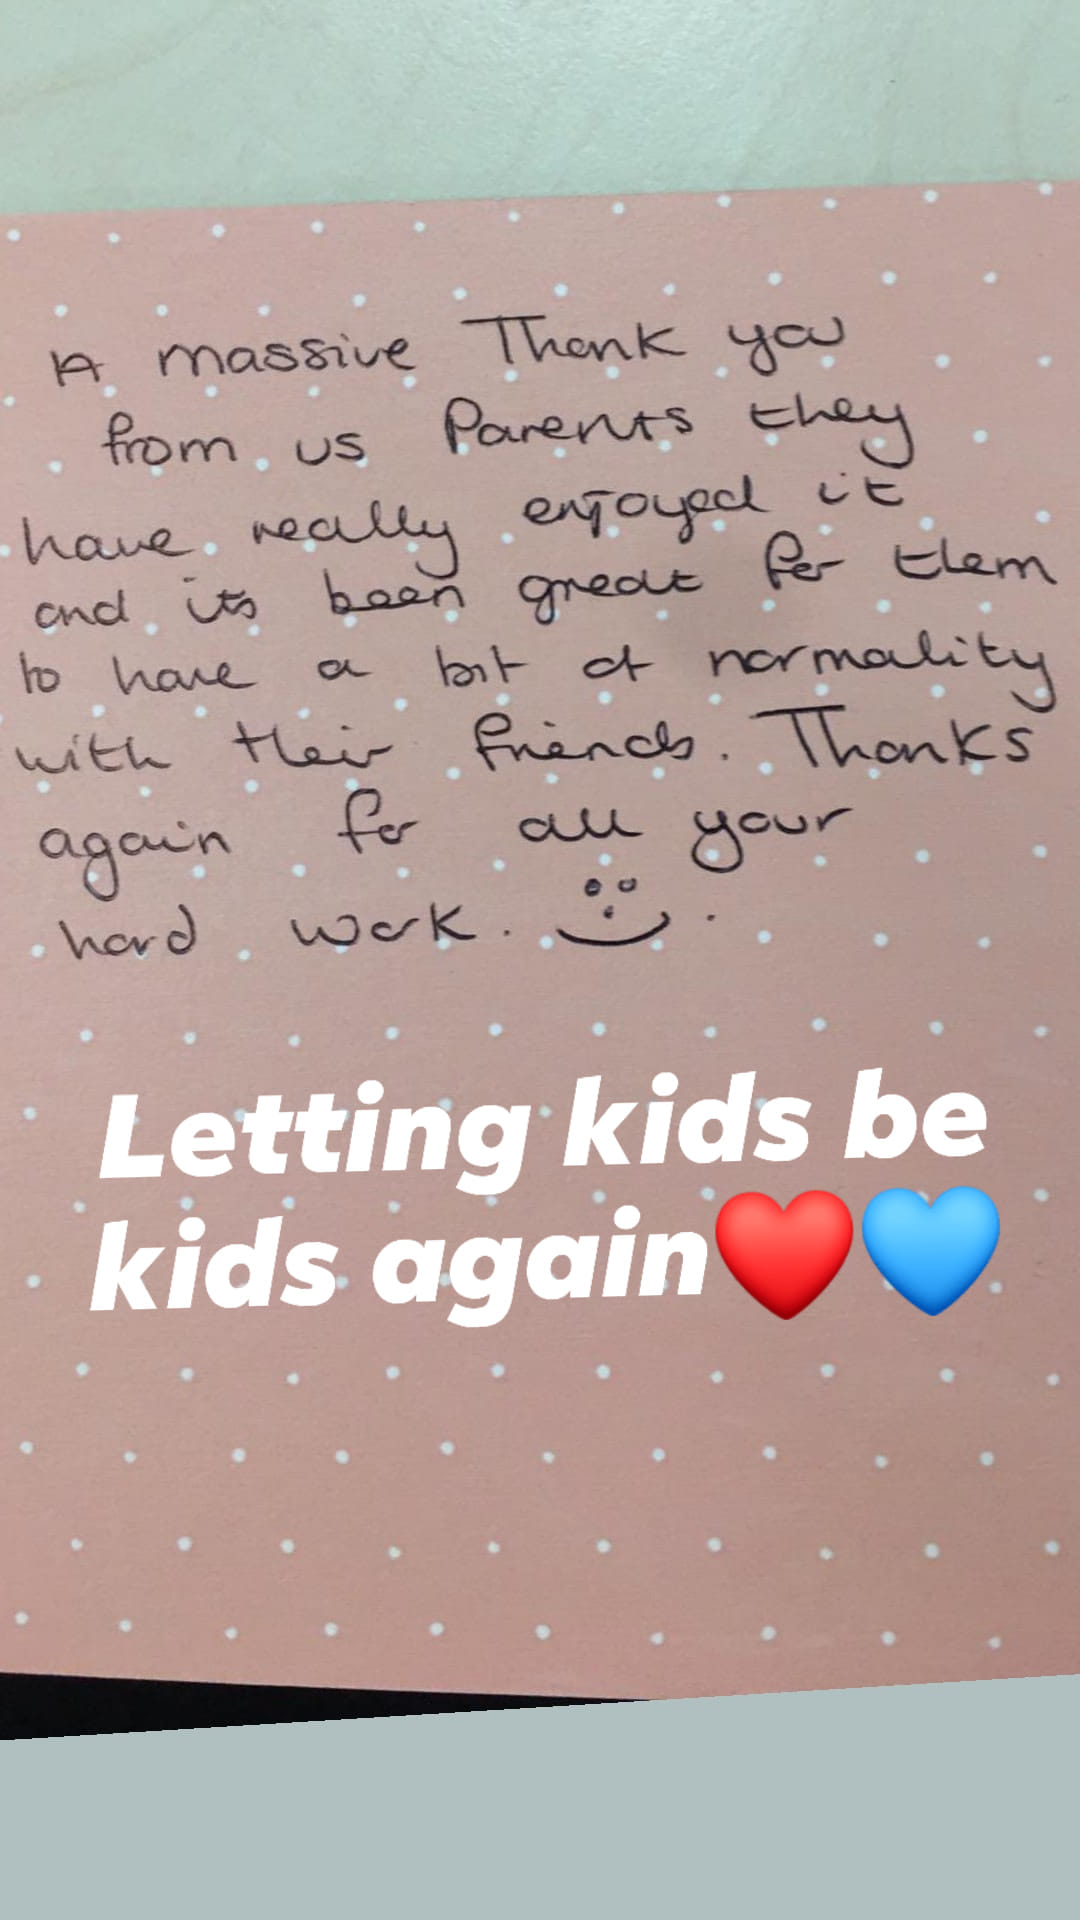 A massive Thank you
from us Parents they
have really enjoyed it
and its been great for them
to have a bit of normality
with their friends. Thanks
again for all your
hard work. .
Letting kids be
kids again❤️💙